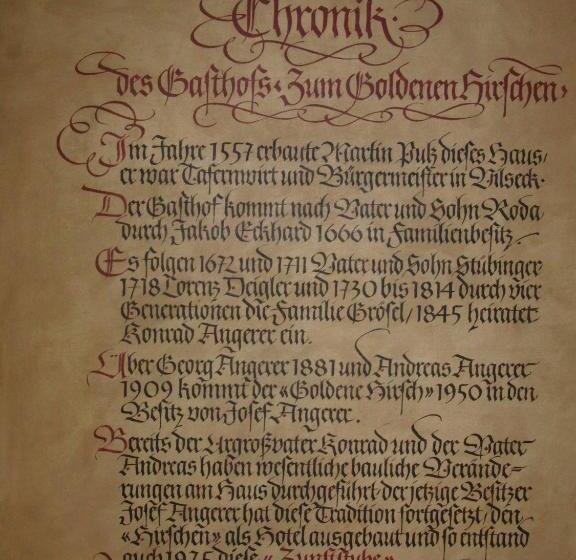 Chronik
des Gasthofs «Zum Goldenen Hirschen»
Im Jahre 1557 erbaute Martin Putz dieses Haus,
er war Tafernwirt und Bürgermeister in Vilseck.
Der Gasthof kommt nach Vater und Sohn Roda
durch Jakob Eckhard 1666 in Familienbesitz.
Es folgen 1672 und 1711 Vater und Sohn Stübinger
1718 Lorenz Deigler und 1730 bis 1814 durch vier
Generationen die Familie Grösel, 1845 heiratet
Konrad Angerer ein.
Über Georg Angerer 1881 und Andreas Angerer
1909 kommt der «Goldene Hirsch» 1950 in den
Besitz von Josef Angerer.
Bereits der Urgroßvater Konrad und der Vater
Andreas haben wesentliche bauliche Verände-
rungen am Haus durchgeführt, der jetzige Besitzer
Josef Angerer hat diese Tradition fortgesetzt, den
«Hirschen» als Hotel ausgebaut und so entstand
auch 1975 diese «Zunftstube»